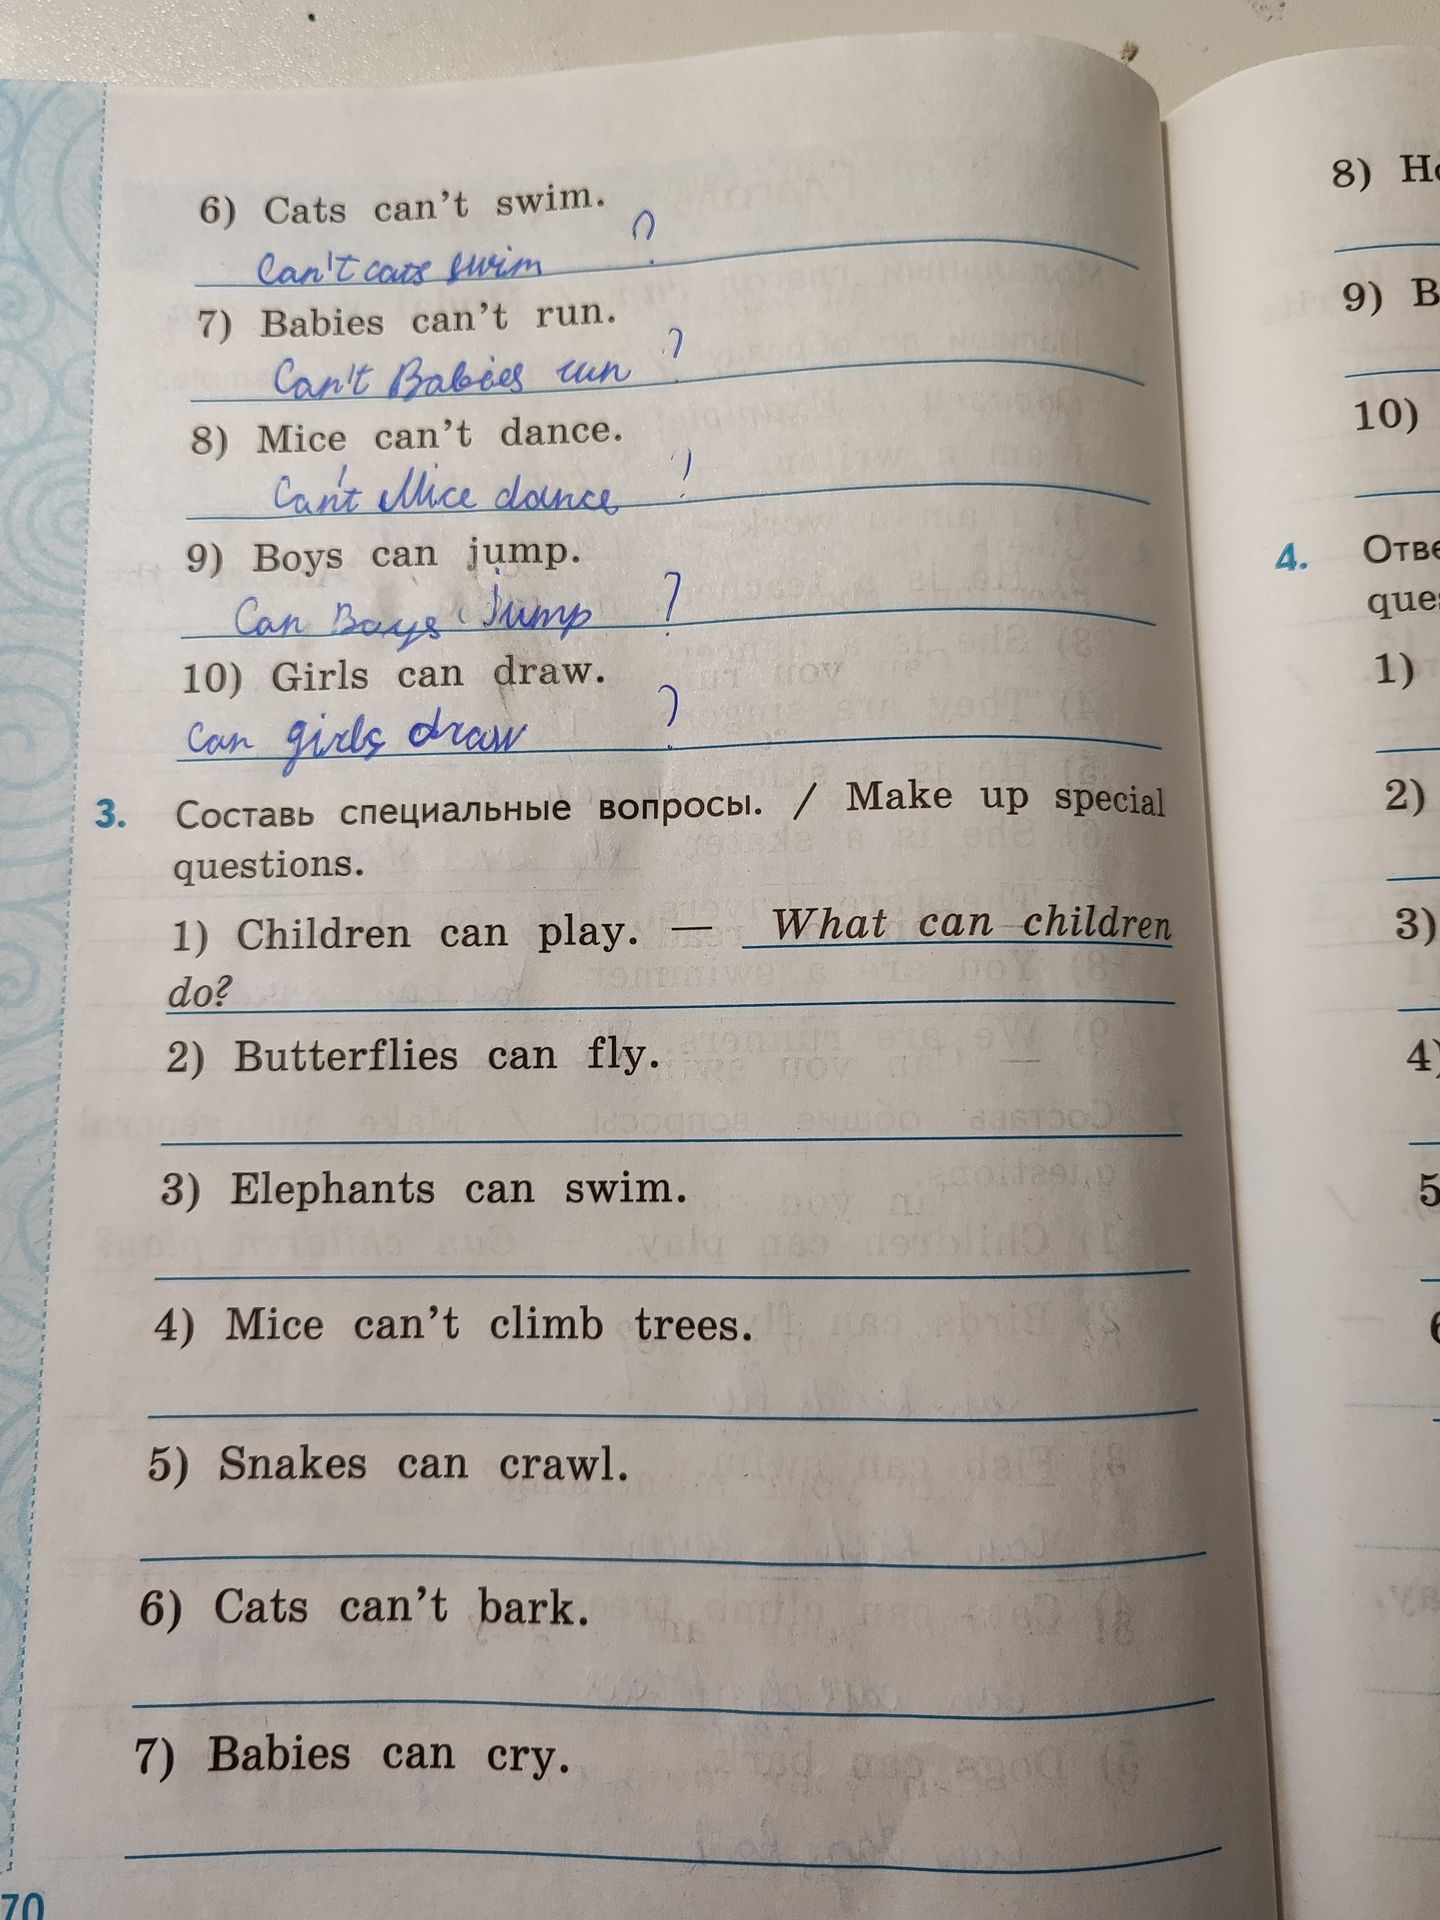 6) Cats can't swim.
Can't cats swim ?
7) Babies can't run.
Can't Babies run ?
8) Mice can't dance.
Can't Mice dance ?
9) Boys can jump.
Can Boys Jump ?
10) Girls can draw.
Can girls draw ?
3. Составь специальные вопросы. / Make up special
questions.
1) Children can play. — What can children
do?
2) Butterflies can fly.
3) Elephants can swim.
4) Mice can't climb trees.
5) Snakes can crawl.
6) Cats can't bark.
7) Babies can cry.
70
8)
9)
10)
4.
1)
2)
3)
4)